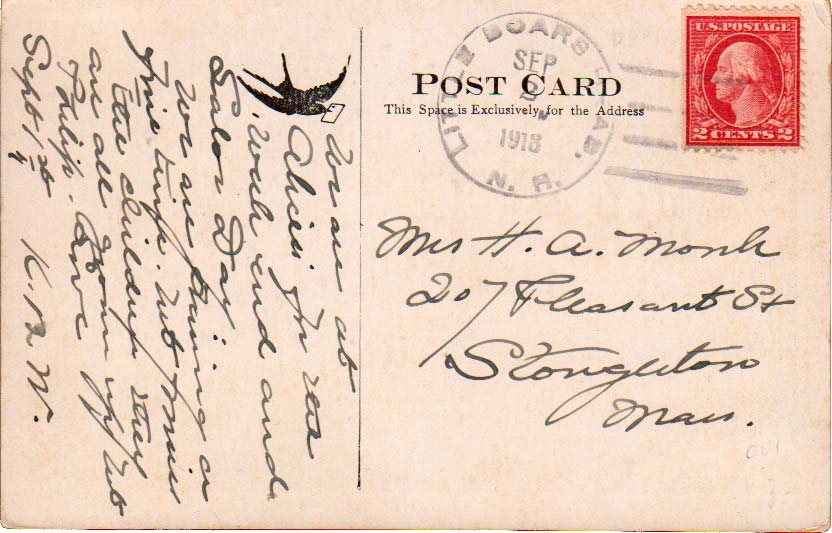 We are at
Alices for
week end and
Labor Day.
We are having a
fine time. but miss
the children they
are all grown up but
Philip. Love
Sept 1st K. M. W.
POST CARD
This Space is Exclusively for the Address
LITTLE BOARS HEAD, N. H.
SEP
2
1918
U.S. POSTAGE
2 CENTS 2
Mrs H. A. Monk
207 Pleasant St
Stoughton
Mass.